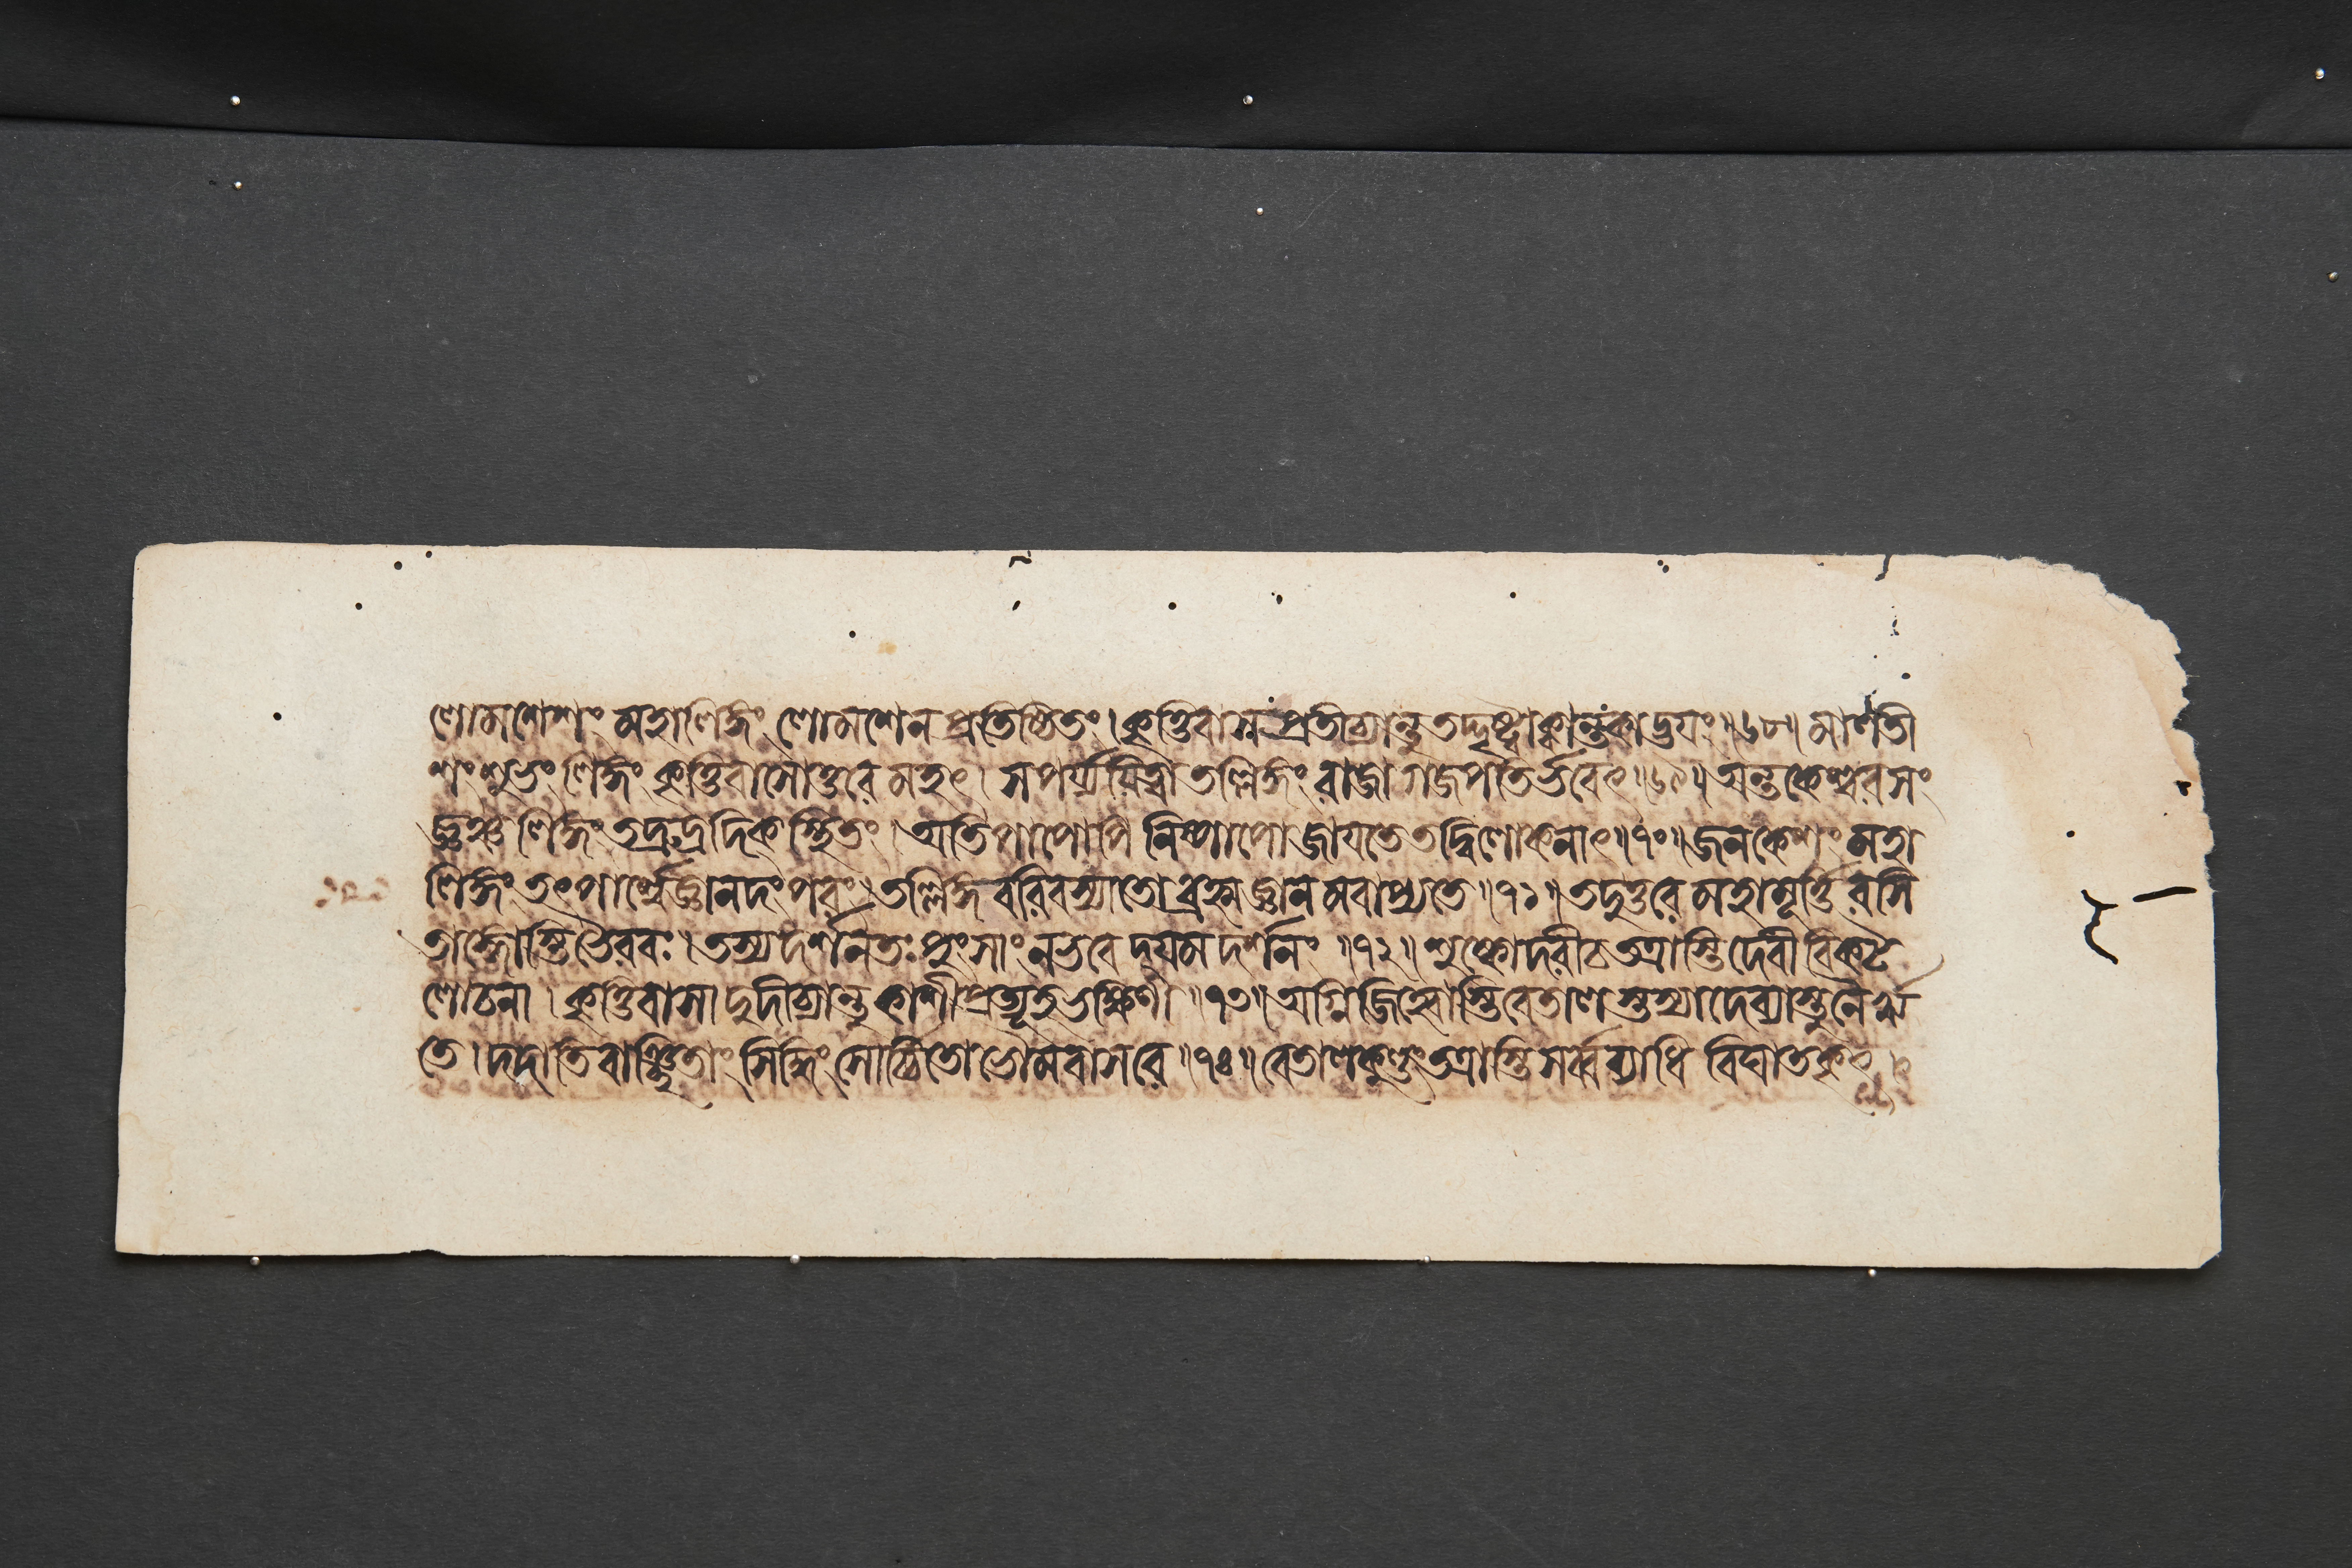 লোমশেশং মহালিঙ্গং লোমশেন প্রতিষ্ঠিতং । কৃত্তিবাসঃ প্রতীচ্যান্তু তদ্দৃষ্ট্বা ক্বান্তকাদ্ভয়ং ॥৬৮॥ মালতী
শং শুভং লিঙ্গং কৃত্তিবাসোত্তরে মহৎ । সপর্য্যয়িত্বা তল্লিঙ্গং রাজা গজপতির্ভবেৎ ॥৬৯॥ অন্তকেশ্বরসং
জ্ঞঞ্চ লিঙ্গং তদ্রুদ্রদিক্স্থিতং । অতিপাপোপি নিষ্পাপো জায়তে তদ্বিলোকনাৎ ॥৭০॥ জনকেশং মহা
লিঙ্গং তৎপার্শ্বে জ্ঞানদং পরং । তল্লিঙ্গবরিবস্যাতো ব্রহ্মজ্ঞানমবাপ্যতে ॥৭১॥ তদুত্তরে মহামূর্ত্তিরসি
তাঙ্গোস্তি ভৈরবঃ । তস্য দর্শনতঃ পুংসাং ন ভবেদ্যমদর্শনং ॥৭২॥ শুষ্কোদরী চ তত্রাস্তি দেবী বিকট
লোচনা । কৃত্তিবাসাদুদীচ্যান্তু কাশীপ্রত্যূহভক্ষিণী ॥৭৩॥ অগ্নিজিহ্বোস্তি বেতালস্তস্যা দেব্যাস্তু নৈরৃ
তে । দদাতি বাঞ্ছিতাং সিদ্ধিং সোর্চিতো ভৌমবাসরে ॥৭৪॥ বেতালকুণ্ডং তত্রাস্তি সর্ব্বব্যাধিবিঘাতকৃৎ ।